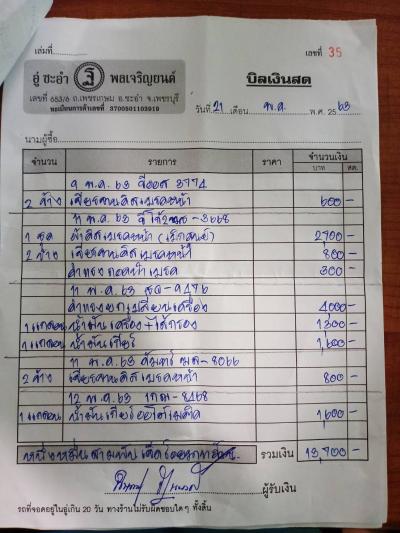 เล่มที่
เลขที่ 35
อู่ ชะอำ พลเจริญยนต์
เลขที่ 653/6 ถ.เพชรเกษม อ.ชะอำ จ.เพชรบุรี
ทะเบียนการค้าเลขที่ 3700501103919
บิลเงินสด
วันที่ 21 เดือน พ.ค. พ.ศ. 2563
นามผู้ซื้อ
จำนวน รายการ ราคา จำนวนเงิน
บาท สต.
9 พ.ค. 63 3774
2 ข้าง เจียรจานดิสเบรคหน้า 600 -
11 พ.ค. 63 - 3668
1 ชุด ผ้าดิสเบรคหน้า 2700 -
2 ข้าง เจียรจานดิสเบรคหน้า 800 -
ค่าแรงถอดผ้าเบรค 300 -
11 พ.ค. 63 - 9476
ค่าแรงยกเปลี่ยนเครื่อง 4000 -
1 แกลลอน น้ำมันเครื่อง + ไส้กรอง 1300 -
1 แกลลอน น้ำมันเกียร์ 1,600 -
11 พ.ค. 63 - 8066
2 ข้าง เจียรจานดิสเบรคหน้า 800 -
12 พ.ค. 63 - 8468
1 แกลลอน น้ำมันเกียร์ออโต้เมติค 1,600 -
หนึ่งหมื่นสามพันเจ็ดร้อยบาทถ้วน รวมเงิน 13,700 -
ผู้รับเงิน
รถที่จอดอยู่ในอู่เกิน 20 วัน ทางร้านไม่รับผิดชอบใดๆ ทั้งสิ้น